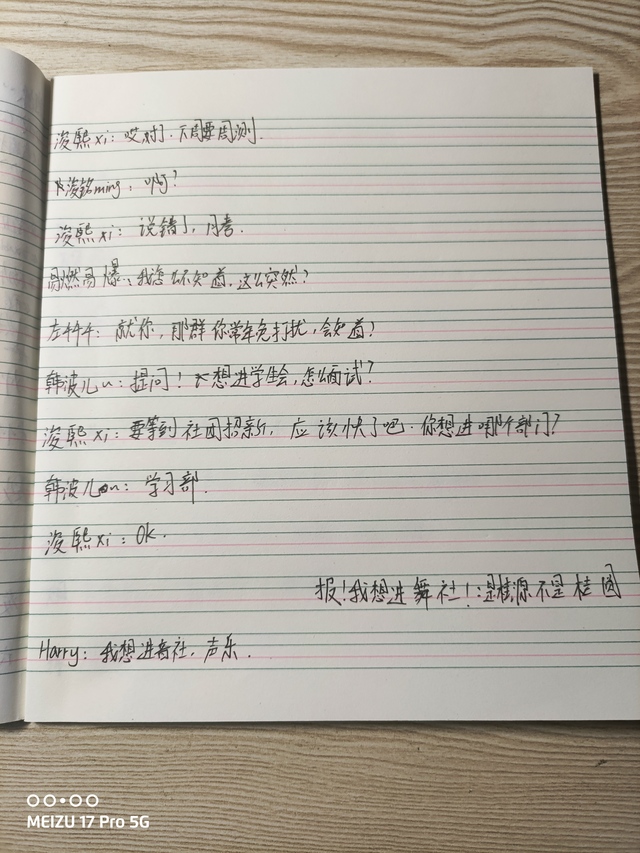 浚熙xi：哎对了.下周要周测.
卞浚铭ming，啊？
浚熙xi：说错了，月考.
易燃易爆：我怎么不知道，这么突然？
左牛牛：就你，那群你常年免打扰，会知道？
韩波儿：提问！想进学生会，怎么面试？
浚熙xi：要等到社团招新，应该快了吧.你想进哪个部门？
韩波儿：学习部.
浚熙xi：Ok.
报！我想进舞社！：是桂源不是桂圆
Harry：我想进音社，声乐.
MEIZU 17 Pro 5G